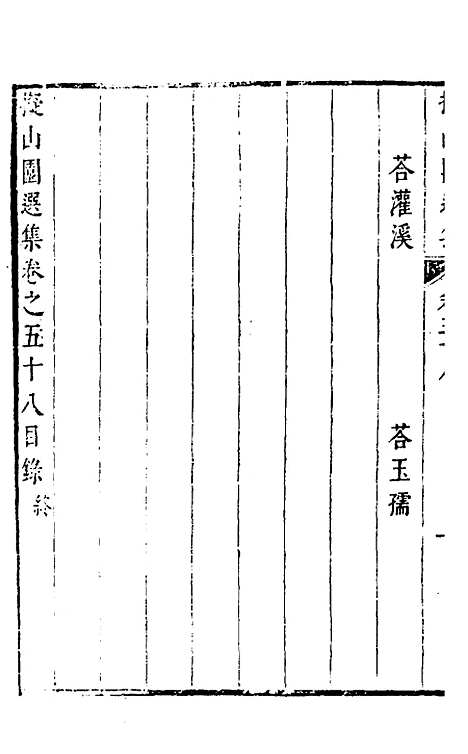 荅灌溪　荅玉孺
擬山園選集卷之五十八目錄終